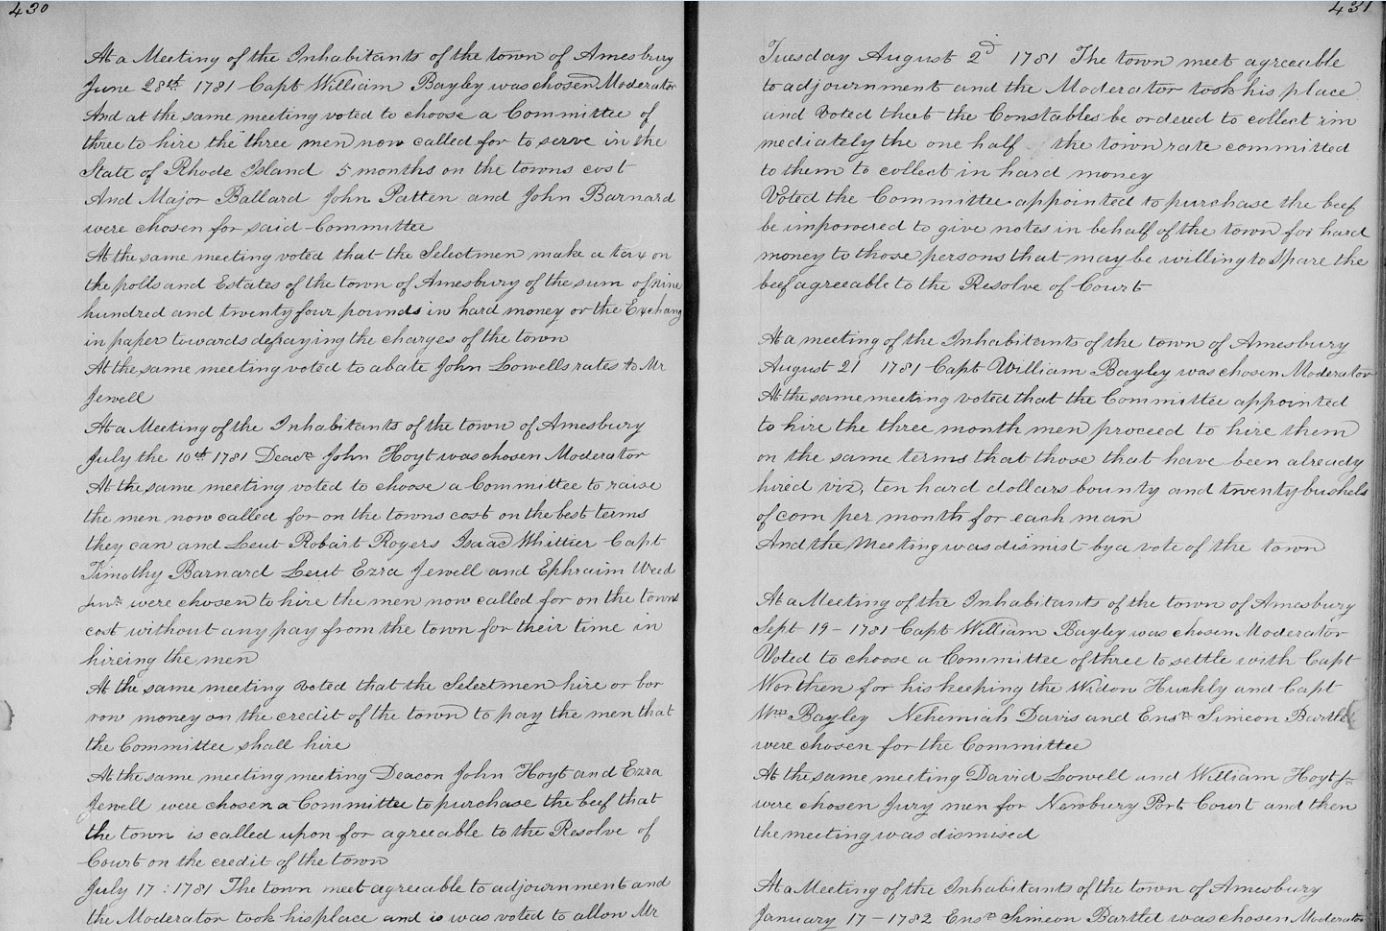 430
At a Meeting of the Inhabitants of the town of Amesbury
June 28th 1781 Capt William Bayley was chosen Moderator
And at the same meeting voted to choose a Committee of
three to hire the three men now called for to serve in the
State of Rhode Island 5 months on the towns cost
And Major Ballard John Patten and John Barnard
were chosen for said Committee
At the same meeting voted that the Selectmen make a tax on
the polls and Estates of the town of Amesbury of the sum of nine
hundred and twenty four pounds in hard money or the Exchang
in paper towards defraying the charges of the town
At the same meeting voted to abate John Lowells rates to Mr
Jewell
At a Meeting of the Inhabitants of the town of Amesbury
July the 10th 1781 Deacn John Hoyt was chosen Moderator
At the same meeting voted to choose a Committee to raise
the men now called for on the towns cost on the best terms
they can and Leut Robart Rogers Isaac Whittier Capt
Timothy Barnard Leut Ezra Jewell and Ephraim Weed
junr were chosen to hire the men now called for on the towns
cost without any pay from the town for their time in
hireing the men
At the same meeting voted that the Selectmen hire or bor
row money on the credit of the town to pay the men that
the Committee shall hire
At the same meeting meeting Deacon John Hoyt and Ezra
Jewell were chosen a Committee to purchase the beef that
the town is called upon for agreeable to the Resolve of
Court on the credit of the town
July 17 : 1781 The town meet agreeable to adjournment and
the Moderator took his place and is was voted to allow Mr
431
Tuesday August 2d 1781 The town meet agreeable
to adjournment and the Moderator took his place
and Voted thet the Constables be ordered to collect im
mediately the one half the town rate committed
to them to collect in hard money
Voted the Committee appointed to purchase the beef
be impowered to give notes in behalf of the town for hard
money to those persons that may be willing to Spare the
beef agreeable to the Resolve of Court
At a meeting of the Inhabitants of the town of Amesbury
August 21 1781 Capt William Bayley was chosen Moderator
At the same meeting voted that the Committee appointed
to hire the three month men proceed to hire them
on the same terms that those that have been already
hired viz, ten hard dollars bounty and twenty bushels
of corn per month for each man
And the Meeting was dismist by a vote of the town
At a Meeting of the Inhabitants of the town of Amesbury
Sept 19 - 1781 Capt William Bayley was chosen Moderator
Voted to choose a Committee of three to settle with Capt
Worthen for his keeping the Widow and Capt
Wm Bayley Nehemiah Davis and Ensn Simeon Bartlet
were chosen for the Committee
At the same meeting David Lowell and William Hoyt jr
were chosen Jury men for Newbury Port Court and then
the meeting was dismised
At a Meeting of the Inhabitants of the town of Amesbury
January 17 - 1782 Ensn Simeon Bartlet was chosen Moderator